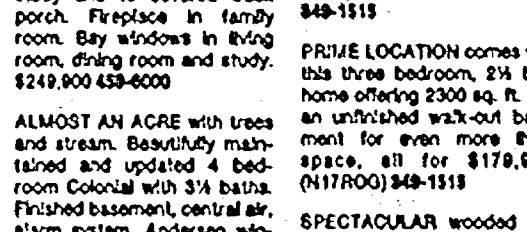 porch. Fireplace in family
room. Bay windows in living
room, dining room and study.
$249,900 453-6000
ALMOST AN ACRE with trees
and stream. Beautifully main-
tained and updated 4 bed-
room Colonial with 3½ baths.
Finished basement, central air,
alarm system, Andersen win-
349-1515
PRIME LOCATION comes
this three bedroom, 2½
home offering 2300 sq. ft.
an unfinished walk-out ba
ment for even more
space, all for $179,9
(N17ROG) 349-1515
SPECTACULAR wooded